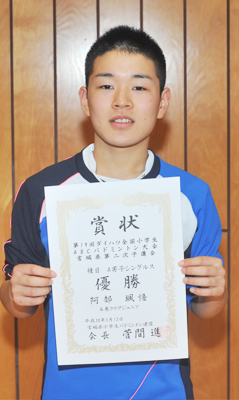 賞状
第19回ダイハツ全国小学生
ABCバドミントン大会
宮城県第二次予選会
種目 A男子シングルス
優勝
阿部 颯悟
宮城県小学生バドミントン連盟
会長 菅間 進